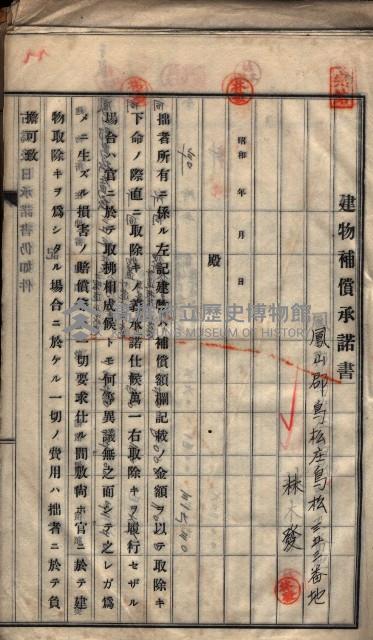 建物補償承諾書
鳳山郡鳥松庄鳥松三五三番地
林
發
昭和　年　月　日
殿
拙者所有ニ係ル左記建物ハ補償額欄記載ノ金額ヲ以テ取除キ
下命ノ際直ニ取除キノ著承諾仕候萬一右取除キヲ履行セザル
場合ハ官ニ於テ取拂相成候トモ何等異議無之而シテ之レガ爲
メニ生ズル損害ノ賠償
切要求仕ル間敷尙ホ官ニ於テ建
物取除キヲ爲シタル場合ニ於ケル一切ノ費用ハ拙者ニ於テ負
擔可致
日承諾書仍如件
記
立歷史博物館
MUSEUM OF HISTORY